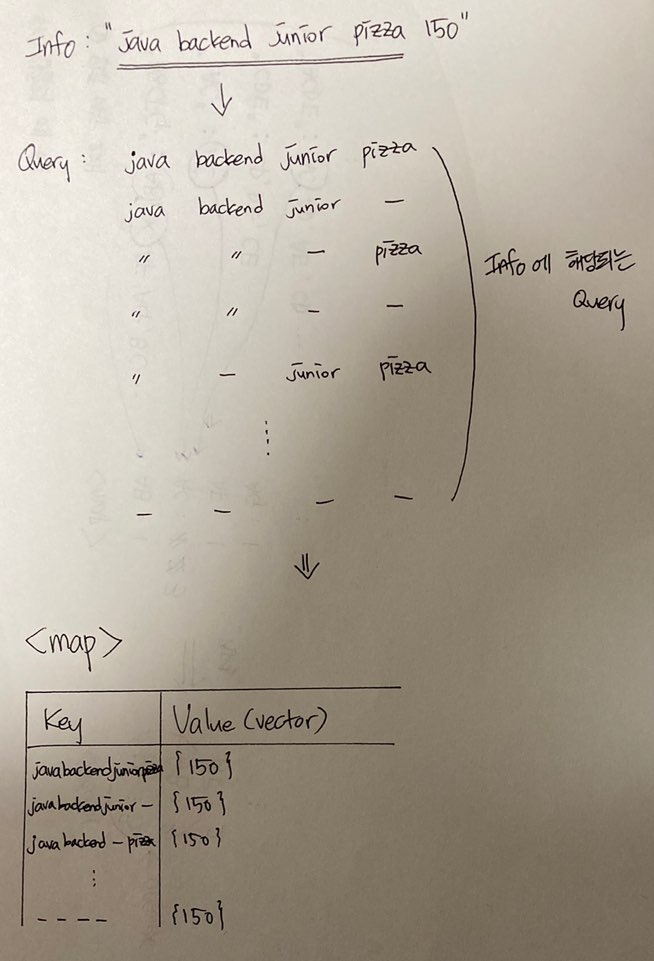 Info : "java backend junior pizza 150"
Query : java backend junior pizza
java backend junior -
〃 〃 - pizza
〃 〃 - -
〃 - junior pizza
- - - -
Info에 해당되는
Query
<map>
Key Value (vector)
javabackendjuniorpizza {150}
javabackendjunior- {150}
javabackend-pizza {150}
- - - - {150}